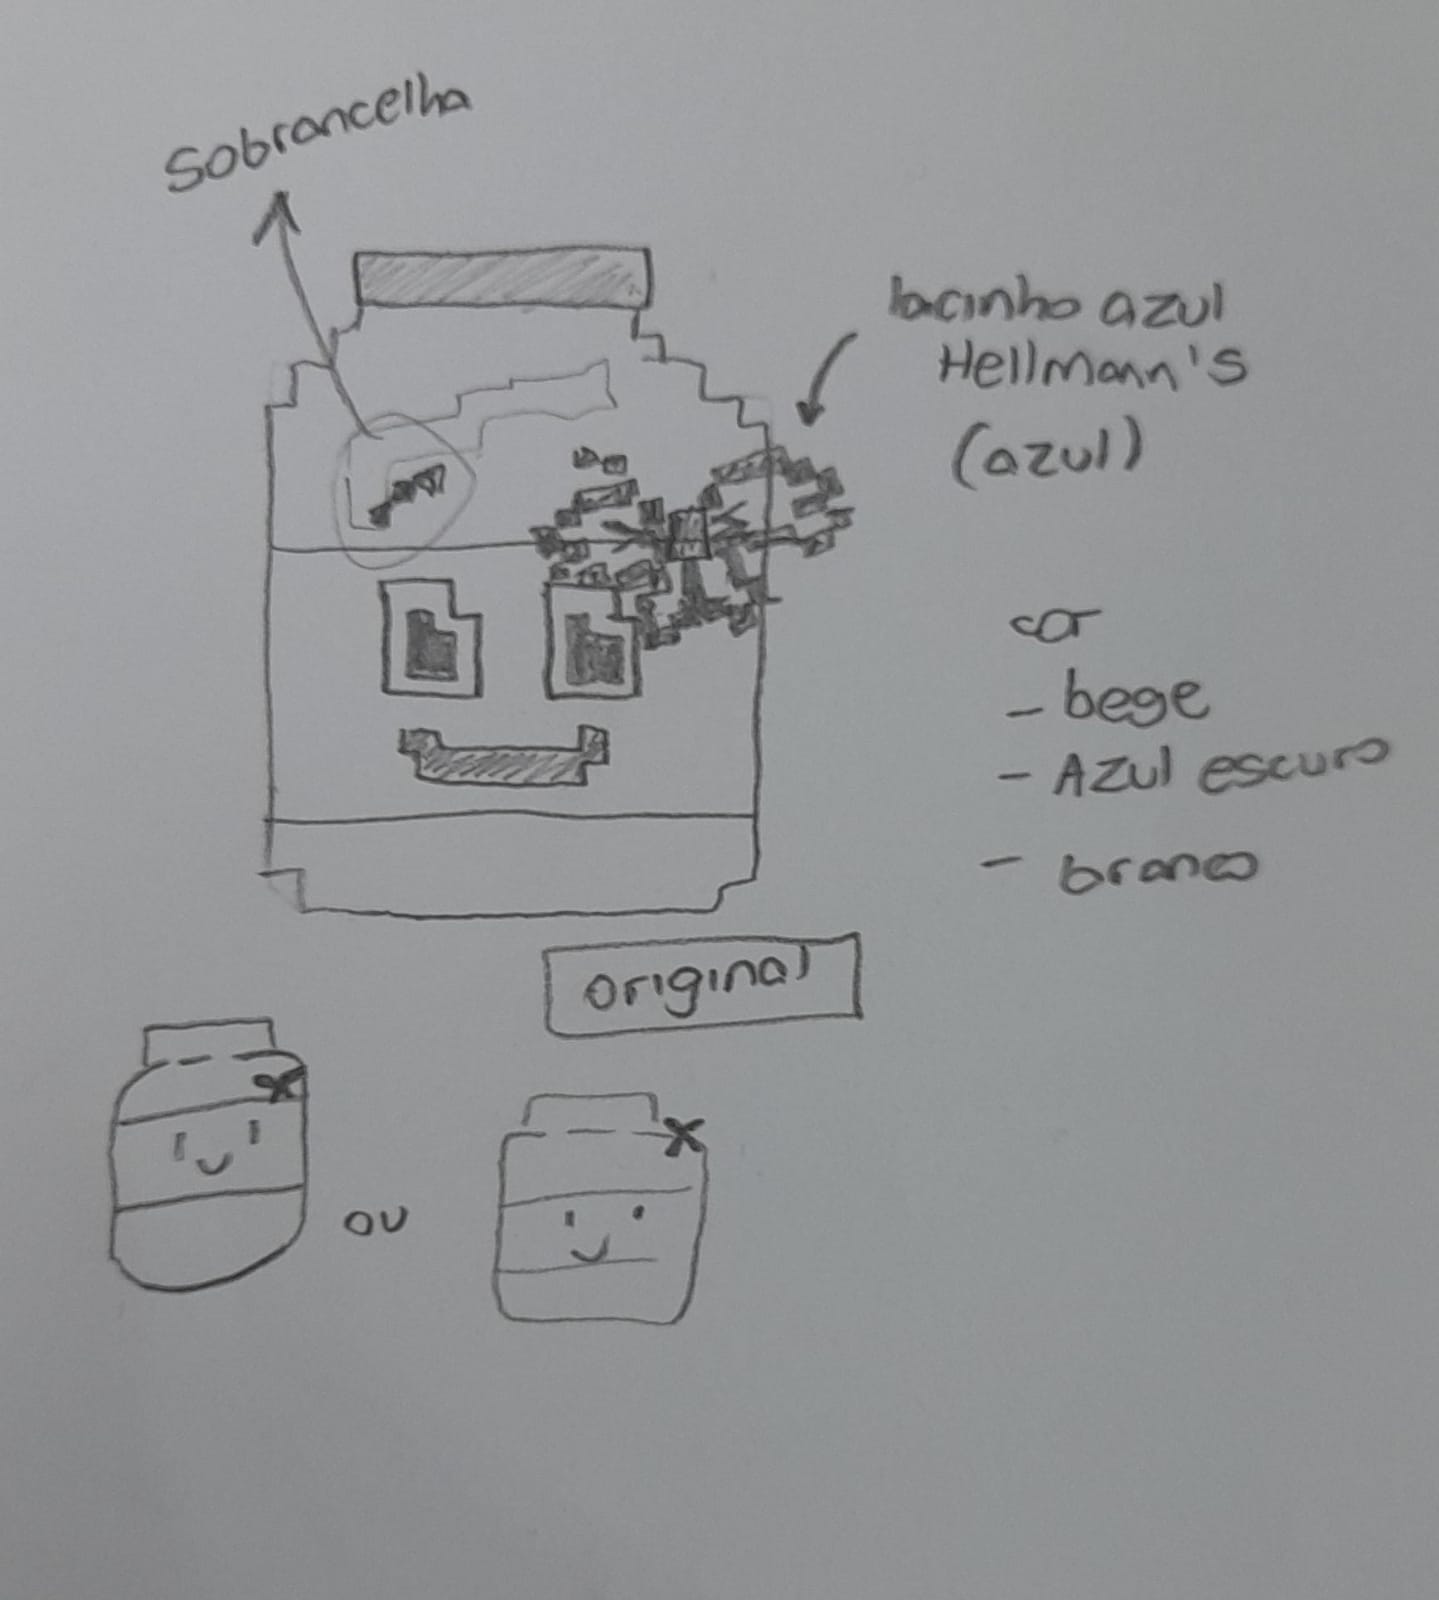 Sobrancelha
lacinho azul
Hellmann's
(azul)
cor
- bege
- Azul escuro
- branco
original
ou